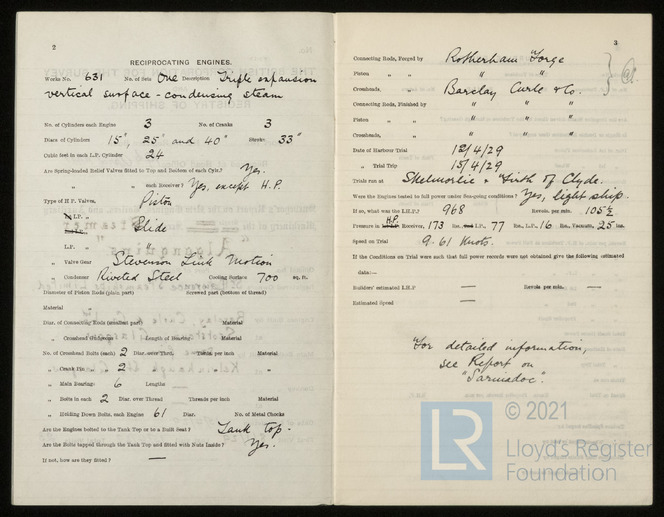 2
RECIPROCATING ENGINES.
Works No. 631 No. of Sets One Description Triple expansion
vertical surface-condensing steam
No. of Cylinders each Engine 3 No. of Cranks 3
Diars. of Cylinders 15", 25" and 40" Stroke 33"
Cubic feet in each L.P. Cylinder 24
Are Spring-loaded Relief Valves fitted to Top and Bottom of each Cylr.? Yes.
" " each Receiver? Yes, except H.P.
Type of H.P. Valves, Piston
" I.P. " Slide
L.P. " "
" Valve Gear Stevenson Link Motion
" Condenser Riveted Steel Cooling Surface 700 sq. ft.
Diameter of Piston Rods (plain part) Screwed part (bottom of thread)
Material
Diar. of Connecting Rods (smallest part) Material
" Crosshead Gudgeons Length of Bearing Material
No. of Crosshead Bolts (each) 2 Diar. over Thrd. Thrds. per inch Material
" Crank Pin " " 2 " " "
" Main Bearings 6 Lengths
" Bolts in each 2 Diar. over Thread Threads per inch Material
" Holding Down Bolts, each Engine 61 Diar. No. of Metal Chocks
Are the Engines bolted to the Tank Top or to a Built Seat? Tank top.
Are the Bolts tapped through the Tank Top and fitted with Nuts Inside? Yes.
If not, how are they fitted? —
3
Connecting Rods, Forged by Rotherham Forge
Piston " " "
Crossheads, " Barclay Curle & Co.
Connecting Rods, Finished by " " "
Piston " " " " "
Crossheads, " " " "
Date of Harbour Trial 12/4/29
" Trial Trip 15/4/29
Trials run at Skelmorlie & Firth of Clyde.
Were the Engines tested to full power under Sea-going conditions? Yes, light ship.
If so, what was the I.H.P.? 968 Revols. per min. 105½
Pressure in H.P. Receiver, 173 lbs., I.P., 77 lbs., L.P., 16 lbs., Vacuum, 25 ins.
Speed on Trial 9.61 Knots.
If the Conditions on Trial were such that full power records were not obtained give the following estimated
data:—
Builders' estimated I.H.P. — Revols per min. —
Estimated Speed —
For detailed information,
see Report on
"Sarniadoc".
© 2021
LR
Lloyd's Register
Foundation